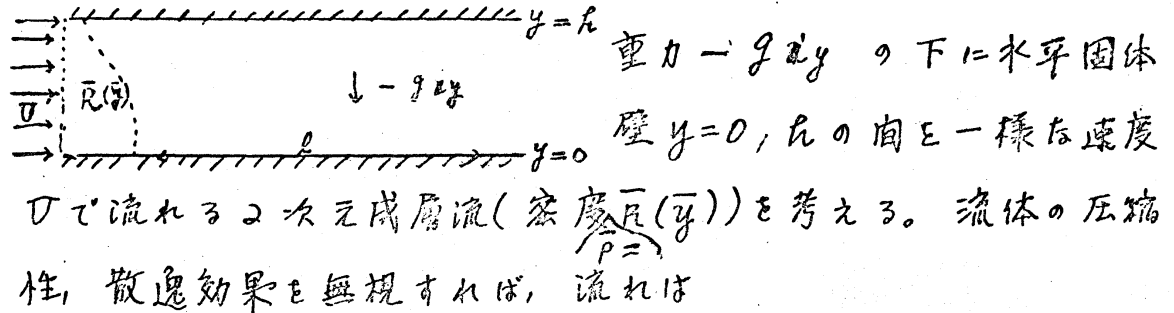 y = h
U
R̄(ȳ)
↓ -g i_y
l
y = 0
重力 -g i_y の下に水平固体
壁 y=0, h の間を一様な速度
Uで流れる2次元成層流(密度R̄(ȳ))を考える。流体の圧縮
ρ̄ =
性, 散逸効果を無視すれば, 流れは